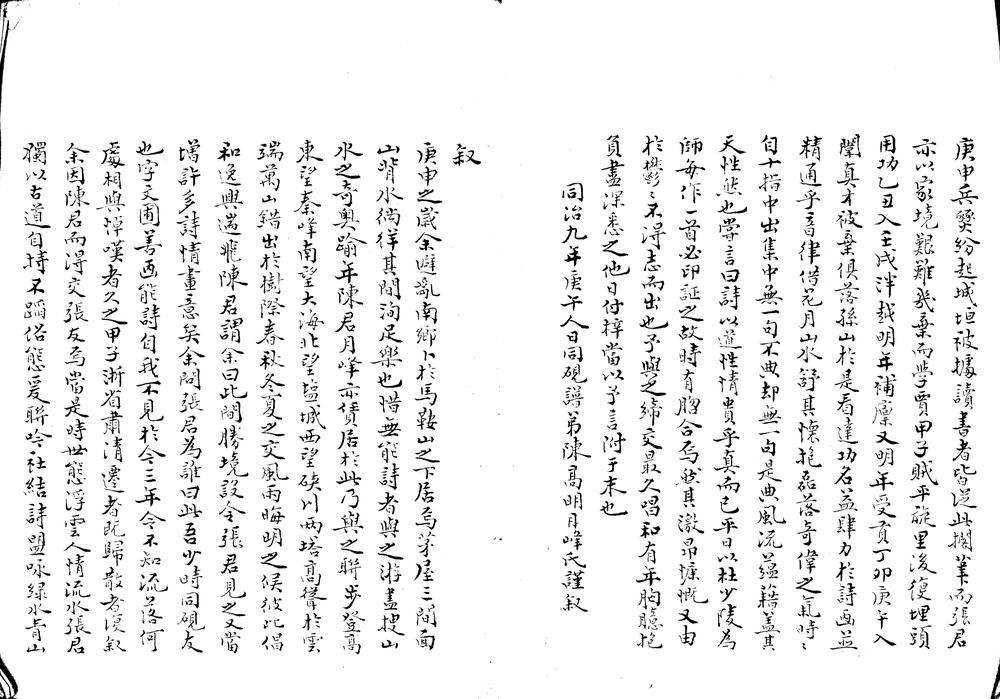 庚申兵燹紛起城垣被據讀書者皆從此擱筆而張君
亦以家境艱難幾棄而學賈甲子賊平旋里後復埋頭
用功乙丑入壬戌泮越明年補廩又明年受貢丁卯庚午入
闈真才被棄俱落孫山於是看達功名益肆力於詩画並
精通乎音律借花月山水舒其懷抱磊落奇偉之氣時〻
自十指中出集中無一句不典却無一句是典風流蘊藉蓋其
天性然也嘗言曰詩以道性情貴乎真而已平日以杜少陵為
師每作一首必印証之故時有脗合焉然其激昂慷慨又由
於鬱〻不得志而出也予與之締交最久唱和有年胸臆抱
負盡深悉之他日付梓當以予言附于末也
同治九年庚午人日同硯譜弟陳高明月峰氏謹叙
叙
庚申之歲余避亂南鄉卜於馬鞍山之下居焉茅屋三間面
山背水徜徉其間洵足樂也惜無能詩者與之游盡搜山
水之奇奥踰年陳君月峰亦賃居於此乃與之聯步登高
東望秦峰南望大海北望塩城西望硤川兩塔高聳於雲
端萬山錯出於樹際春秋冬夏之交風雨晦明之候彼此倡
和逸興遄飛陳君謂余曰此間勝境設令張君見之又當
增許多詩情畫意矣余問張君為誰曰此吾少時同硯友
也字文圃善画能詩自我不見於今三年今不知流落何
處相與憚嘆者久之甲子浙省肅清遷者既歸散者復叙
余因陳君而得交張友焉當是時世態浮雲人情流水張君
獨以古道自持不蹈俗態爰聯吟社結詩盟咏綠水青山